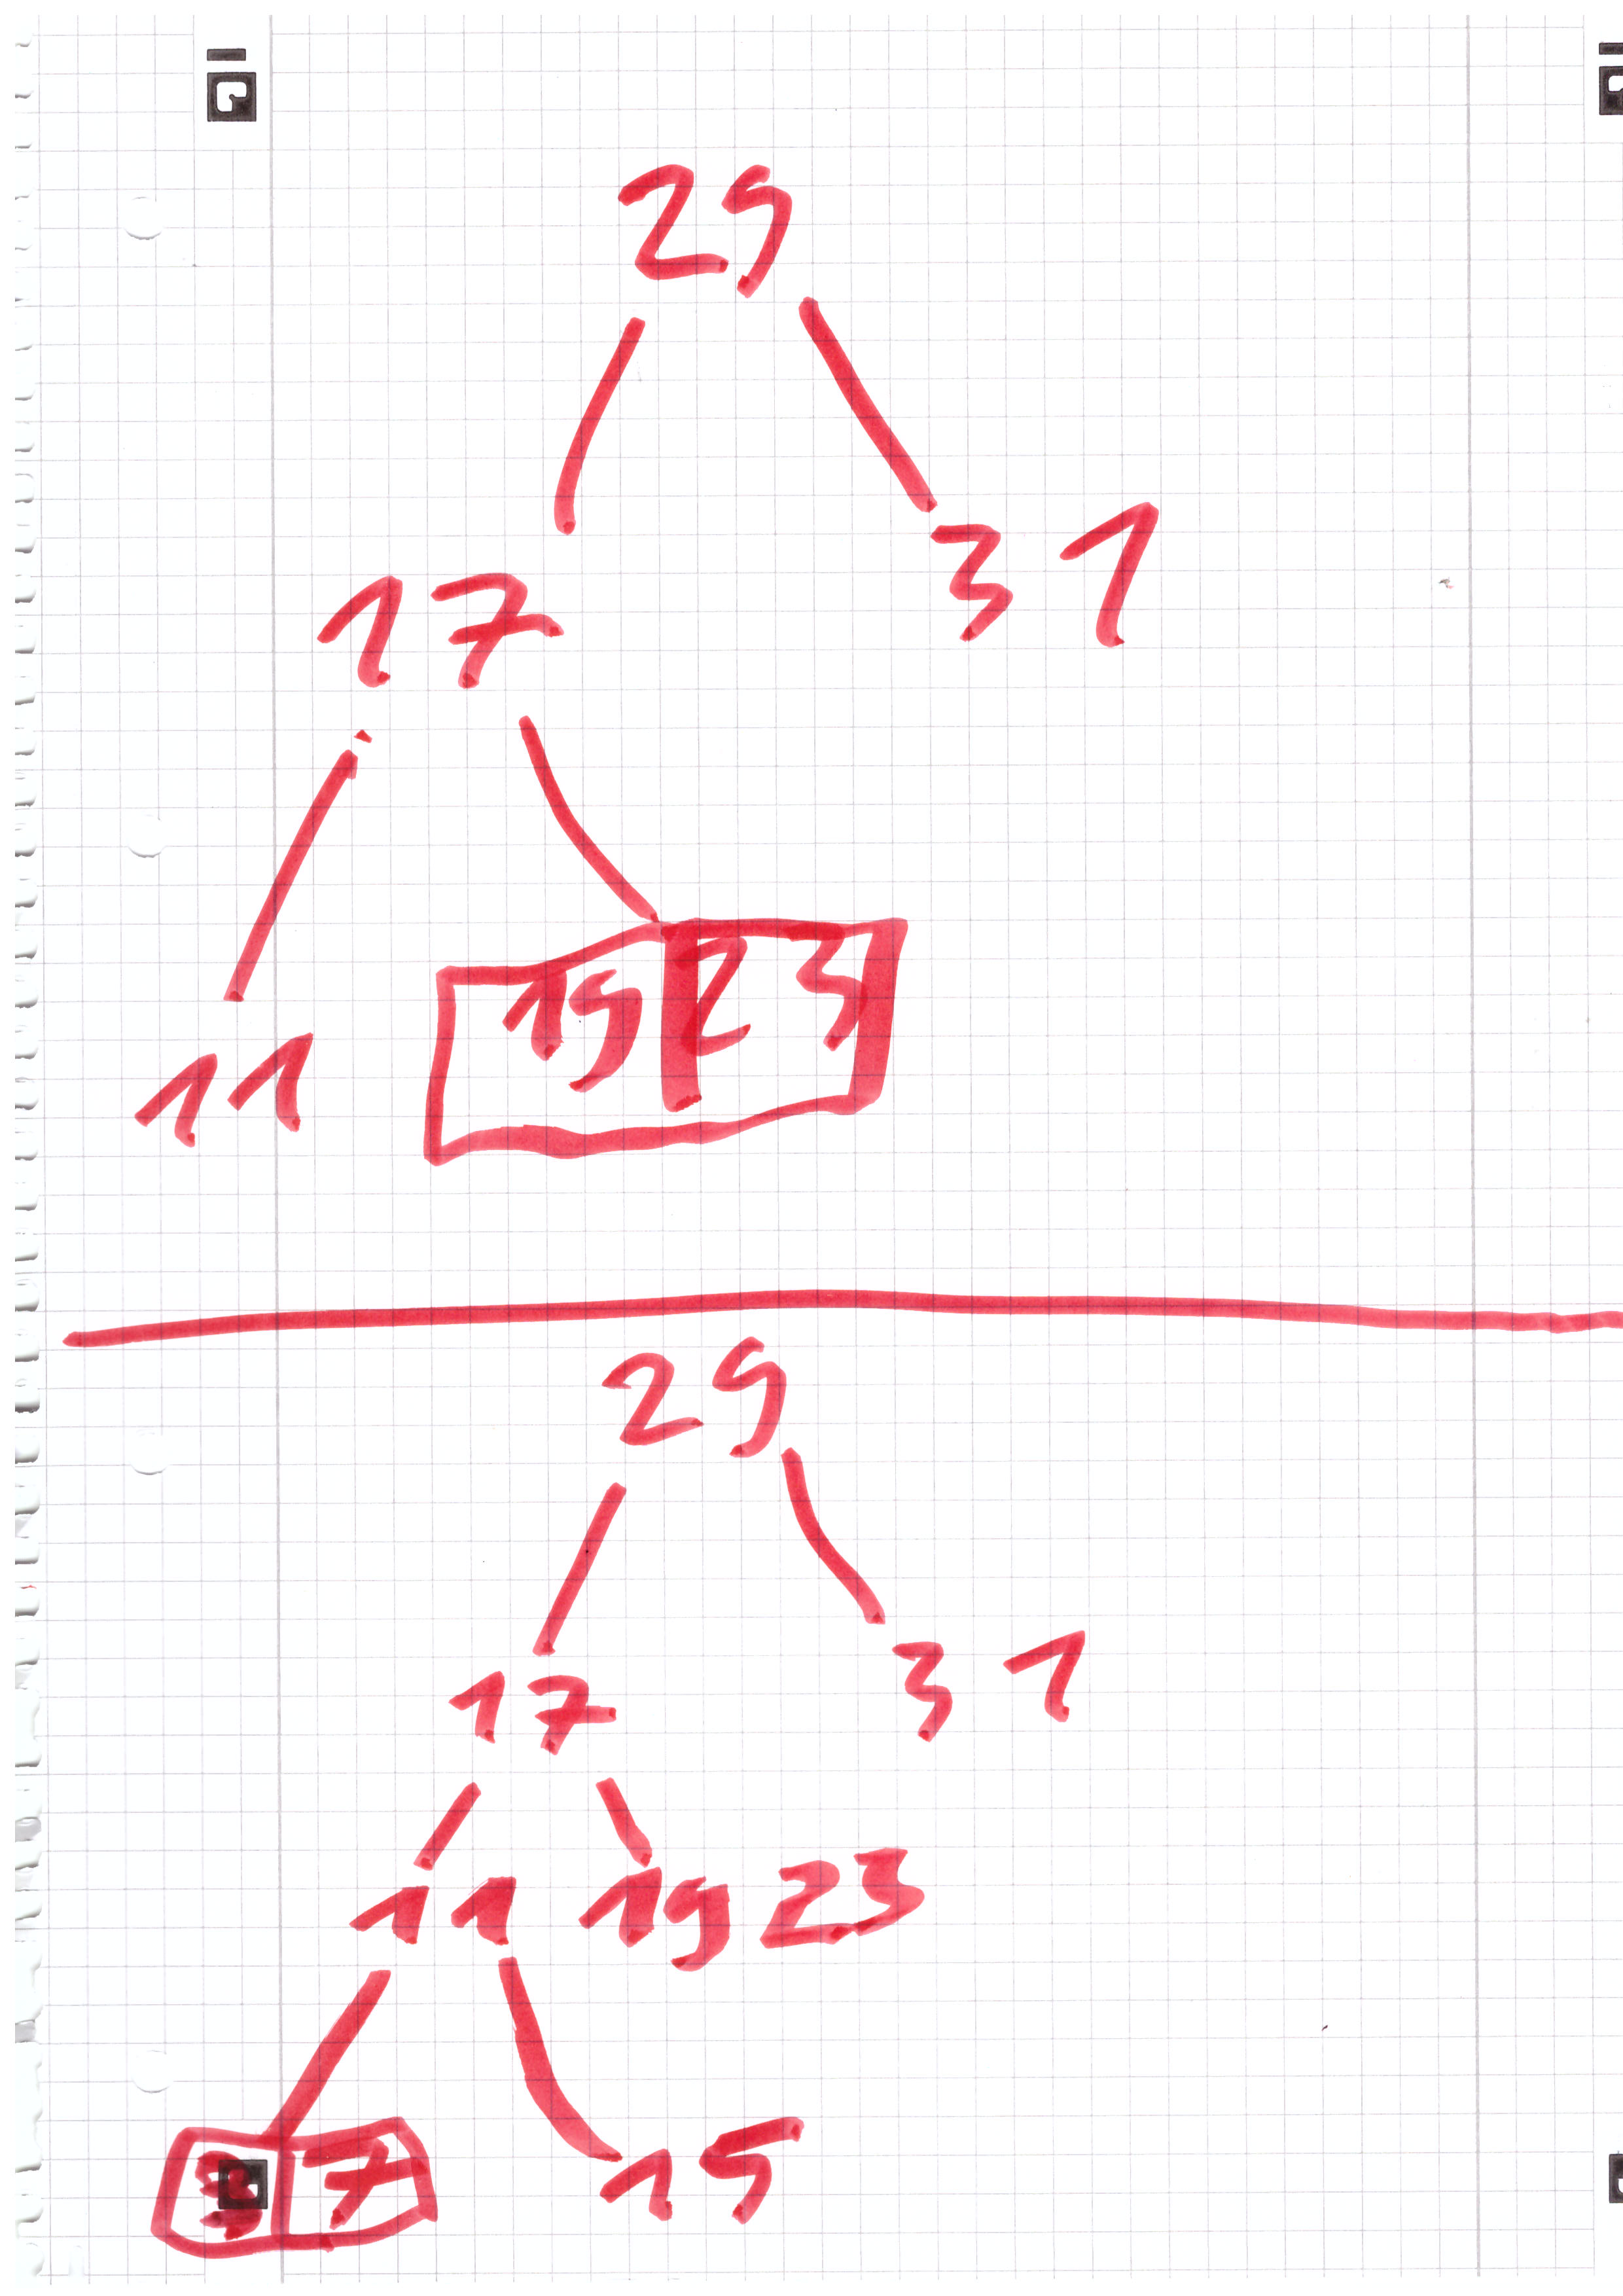 29
17 31
11 19 23
29
17 31
11 19 23
7 15